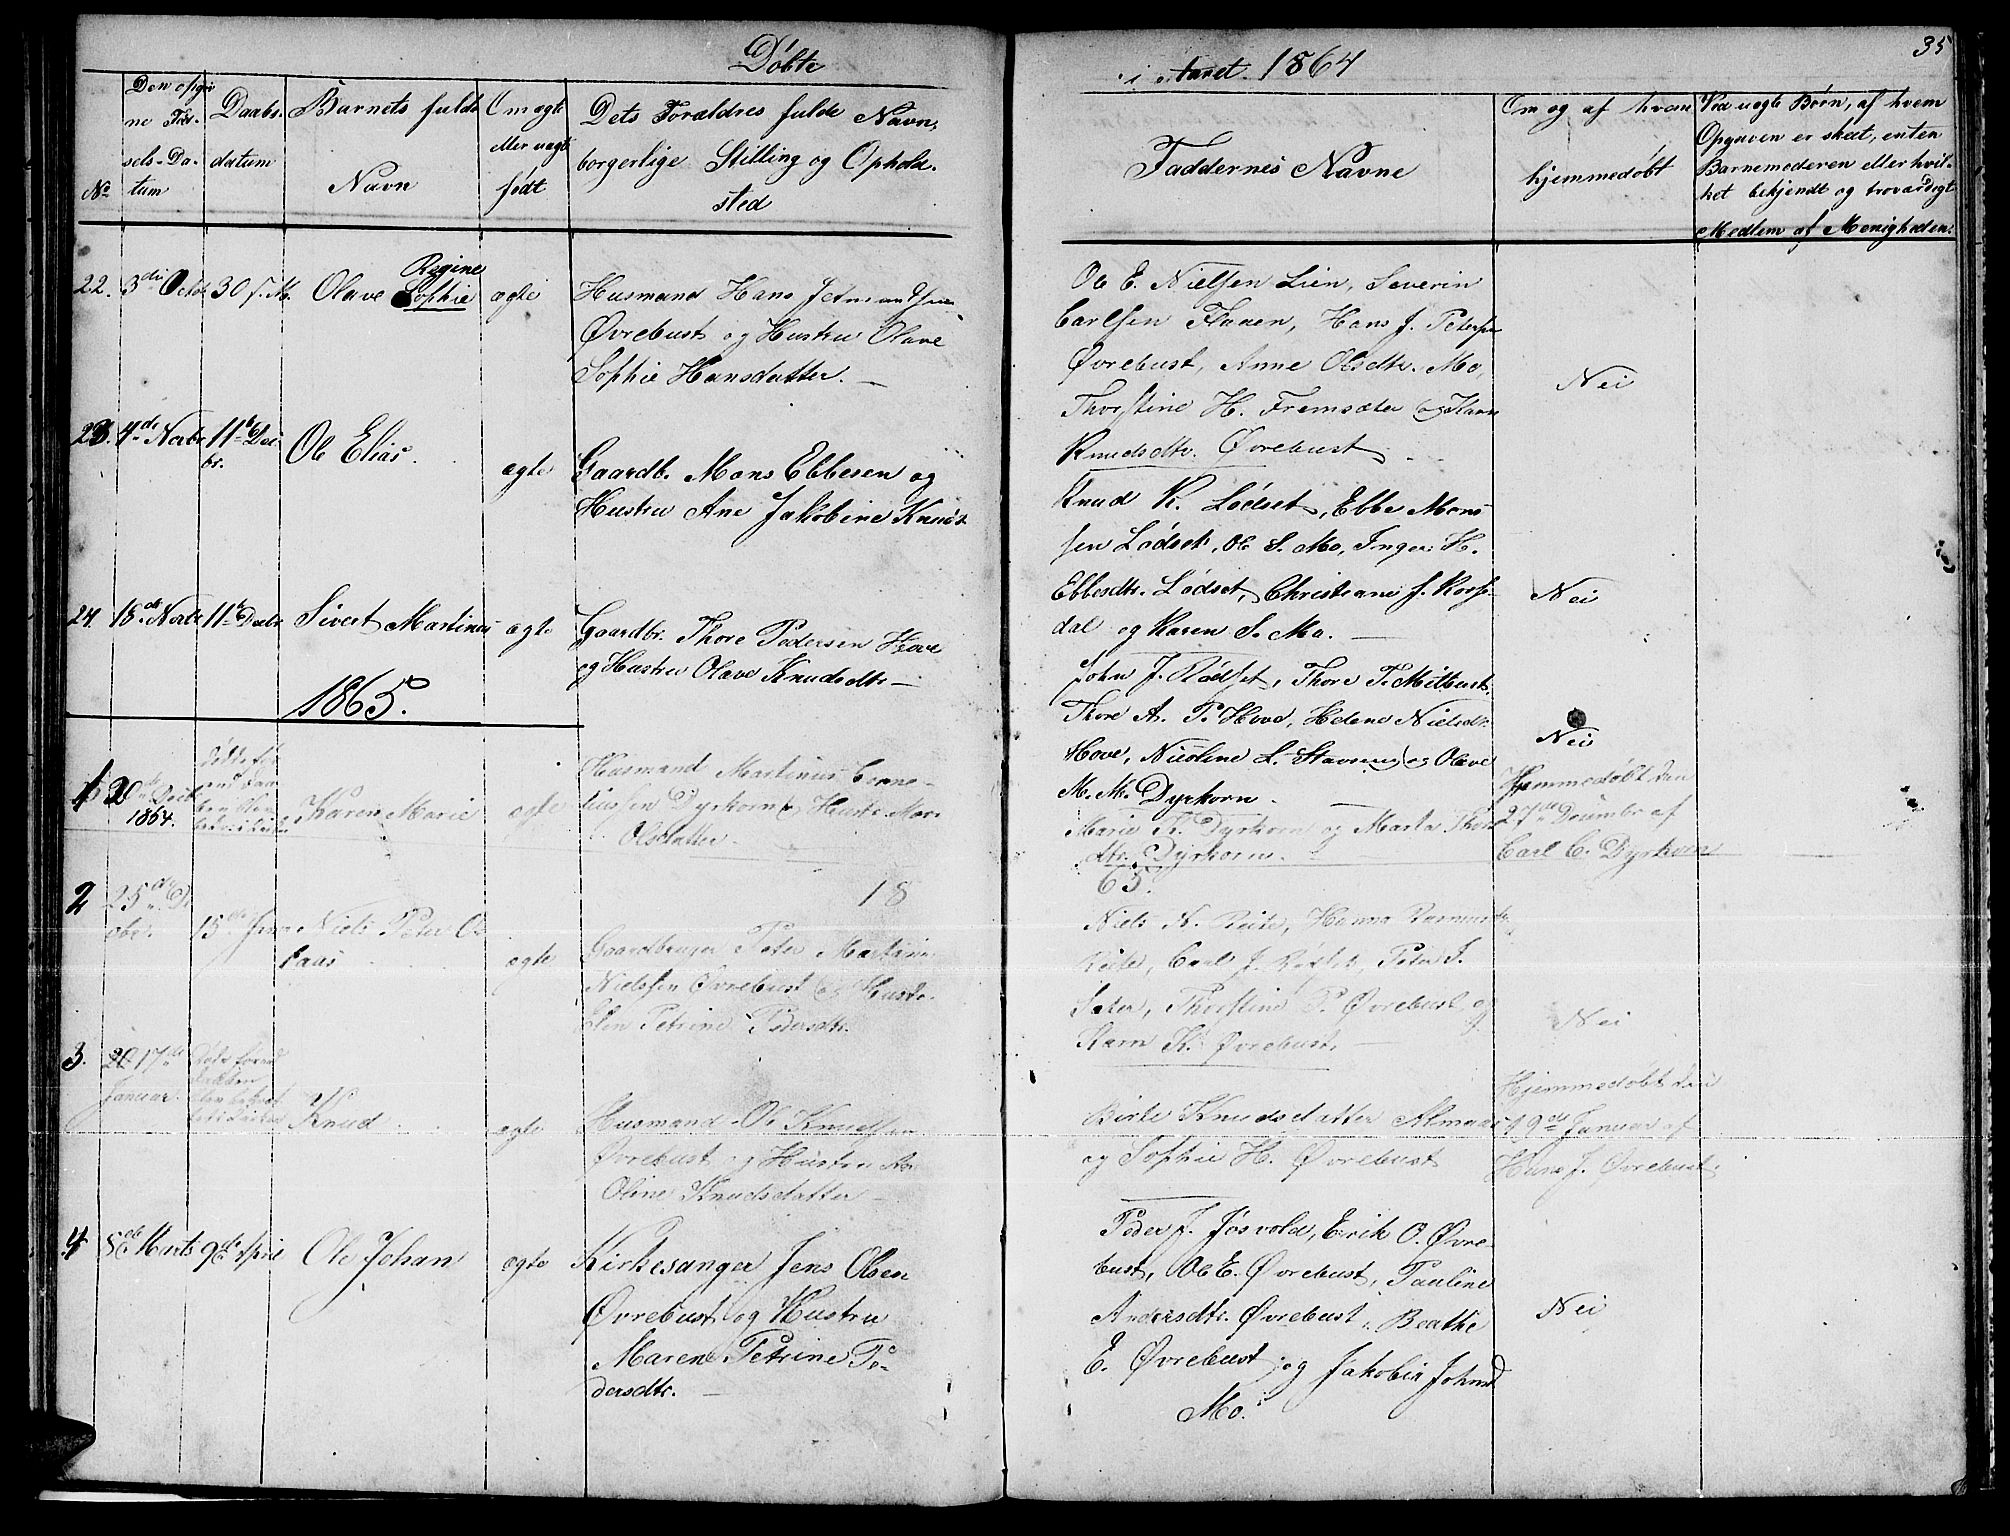 Døbte
i Aaret 1864
35
No
Den opgiv
ne Fød-
sels-Da-
tum
Daabs-
datum
Barnets fulde
Navn
Om ægte
eller uægte
født
Dets Forældres fulde Navn,
borgerlige Stilling og Opholds-
sted
Faddernes Navne
Om og af hvem
hjemmedøbt
Ved uægte Børn, af hvem
Opgaven er skeet, enten
Barnemoderen eller hvil-
ket bekjendt og troværdigt
Medlem af Menigheden.
22. 3die Octbr 30 s. M. Olave Regine
Sophie ægte
Husmand Hans
Øvrebust og Hustru Olave
Sophie Hansdatter. —
Ole E. Nielsen Lien, Severin
Carlsen Flauen, Hans J. Petersen
Øvrebust, Anne Olsdtr. Mo,
Thorstine H. Fremsæter og Karn
Knudsdtr. Øvrebust
Nei
23. 4de Novbr 11te Dec
br. Ole Elias ægte
Gaardb. Mons Ebbesen og
Hustru Ane Jakobine Knudsd
Knud K. Lødset, Ebbe Mons-
sen Lødset, Ole S. Mo, Inger H.
Ebbesdtr. Lødset, Christiane J. Kors-
dal og Karen S. Mo. —
Nei
24. 18de Novbr 11te Decbr Sivert Martinus ægte
Gaardbr. Thore Pedersen Hove
og Hustru Olave Knudsdtr —
John J. Rødset, Thore T. Mitbust,
Thore A. P. Hove, Helene Nielsdtr
Hove, Nicoline L. Stavseng og Olave
M. M. Dyrkorn. —
Nei
1865.
1 20de Decbr
1864. Døbte for
end
Karen Marie ægte
Husmand Martinus Corne-
liussen Dyrkorn & Hustr. Mar.
Olsdatter.
Marie K. Dyrkorn og Marta Thors
dtr. Dyrkorn.
Hjemmedøbt den
27de Decembr af
Carl C. Dyrkorn
18
65.
2 25de De
cbr. 15de Janr Niels Peter O
laus ægte
Gaardbruger Peter Martin
Nielssen Øvrebust og Hustr.
Elen Petrine Pedersdtr.
Niels N. Reite, Hanna Rasmusdtr
Reite, Carl J. Rødset, Peter J.
Sæter, Thorstine P. Øvrebust og
Karn K. Øvrebust. —
Nei
3. 20 17de
Januar. Knud ægte
Husmand Ole Knudssen
Øvrebust og Hustru An
Oline Knudsdatter —
Birte Knudsdatter Almaas
og Sophie H. Øvrebust
Hjemmedøbt den
19de Januar af
Hans J. Øvrebust
4 5de Marts 9de April Ole Johan ægte
Kirkesanger Jens Olsen
Øvrebust og Hustru
Maren Petrine Pe-
dersdtr. —
Peder J. Jøsvold, Erik O. Øvre-
bust, Ole E. Øvrebust, Pauline
Andersdtr. Øvrebust, Beathe
E. Øvrebust og Jakobin Johnsd
Mo.
Nei